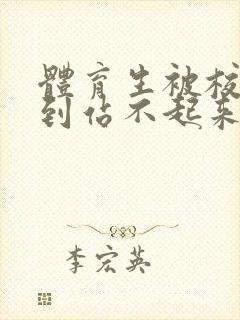 體育生被校
到佔不起來
李宏英